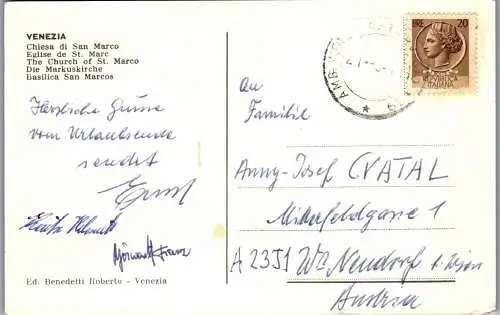 VENEZIA
Chiesa di San Marco
Eglise de St. Marc
The Church of St. Marco
Die Markuskirche
Basilica San Marcos
20
REPVBBLICA
ITALIANA
Herzliche Grüsse
vom Urlaubsende
sendet
Ernst
Franz
An
Familie
Anny-Josef CVATAL
Mitterfeldgasse 1
A 2351 Wr. Neudorf b. Wien
Austria
Ed. Benedetti Roberto - Venezia